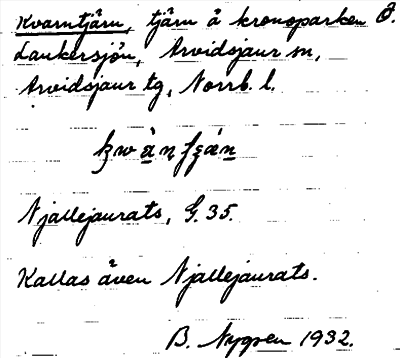 Kvarntjärn, tjärn å kronoparken Ö.
Laukersjön, Arvidsjaur sn,
Arvidsjaur tg, Norrb. l.
Njallejaurats, G. 35.
Kallas även Njallejaurats.
B. Nygren 1932.